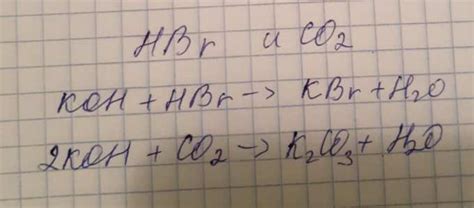 HBr и CO₂
KOH + HBr → KBr + H₂O
2KOH + CO₂ → K₂CO₃ + H₂O